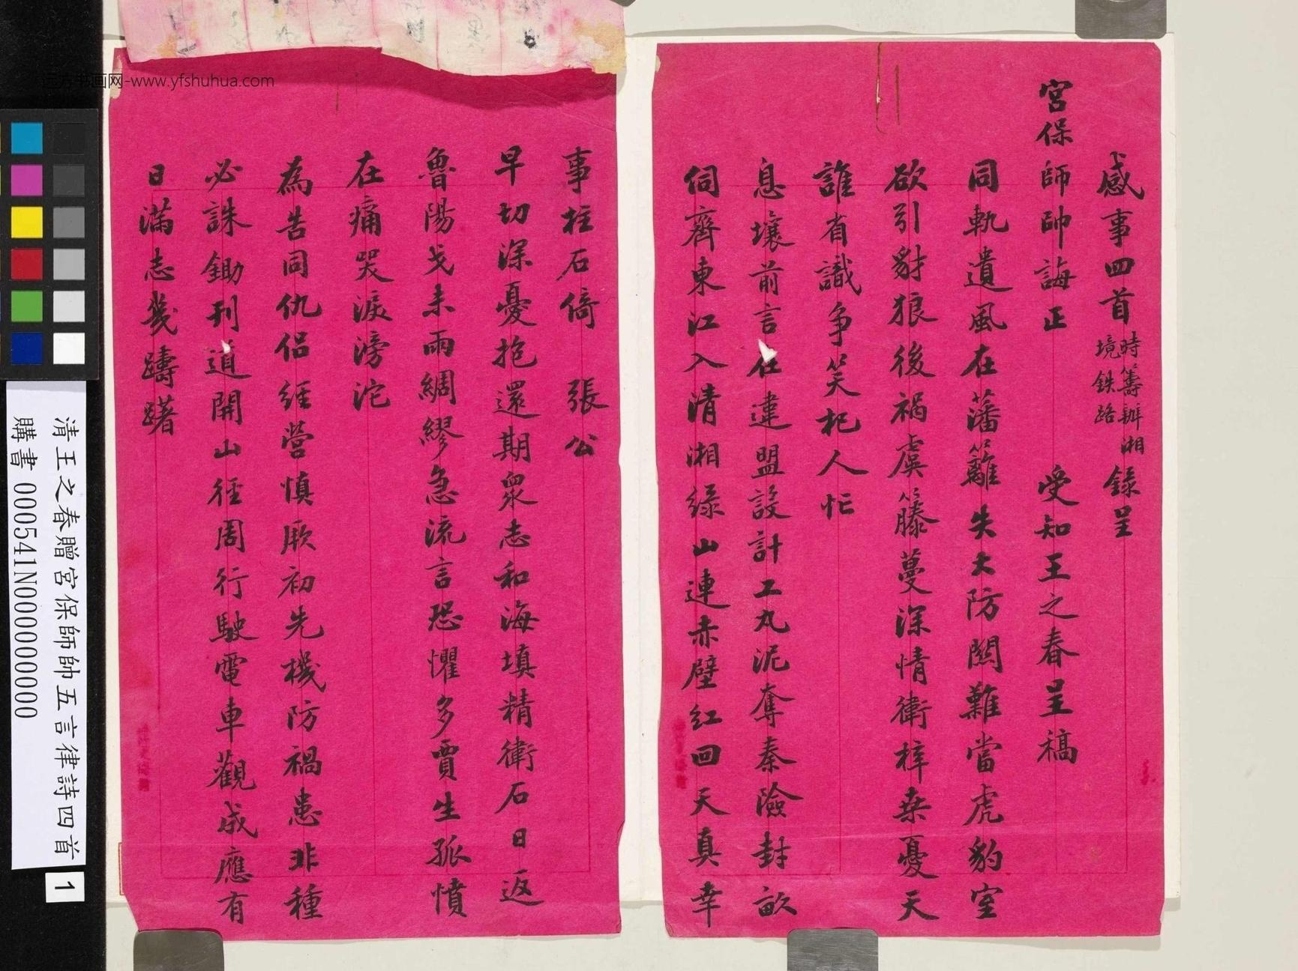 感事四首時籌辦湘境鉄路錄呈
宮保師帥誨正　受知王之春呈稿
同軌遺風在藩籬失大防關難當虎豹室
欲引豺狼後禍虞籐蔓深情衛梓桑憂天
誰有識爭笑杞人忙
息壤前言在連盟設計工丸泥奪秦險封畝
伺齊東江入清湘綠山連赤壁紅回天真幸
事柱石倚　張公
早切深憂抱還期衆志和海填精衛石日返
魯陽戈未雨綢繆急流言恐懼多賈生孤憤
在痛哭淚滂沱
為告同仇侶經營慎厥初先機防禍患非種
必誅鋤刊道開山徑周行駛電車觀成應有
日滿志幾躊躇
清王之春贈宮保師帥五言律詩四首
購書 000541N000000000
1
书画网-www.yfshuhua.com